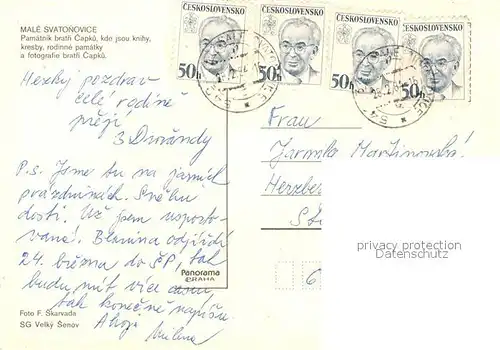 MALÉ SVATOŇOVICE
Památník bratří Čapků, kde jsou knihy,
kresby, rodinné památky
a fotografie bratří Čapků.
ČESKOSLOVENSKO
50h
ČESKOSLOVENSKO
50h
ČESKOSLOVENSKO
50h
ČESKOSLOVENSKO
50h
Hezký pozdrav
celé rodině
přejí
3 Dvořándy
P.S. Jsme tu na jarních
prázdninách. Sněhu
dosti. Už jsem uspoto-
vaná! Blanina odjíždí
24. března do ŠP, tak
budu mít více času
tak konečně napíšu.
Ahoj
Milena
Frau
Jarmila Martinovská!
Herzber
6
Panorama
PRAHA
Foto F. Skarvada
SG Velký Šenov
privacy protection
Datenschutz